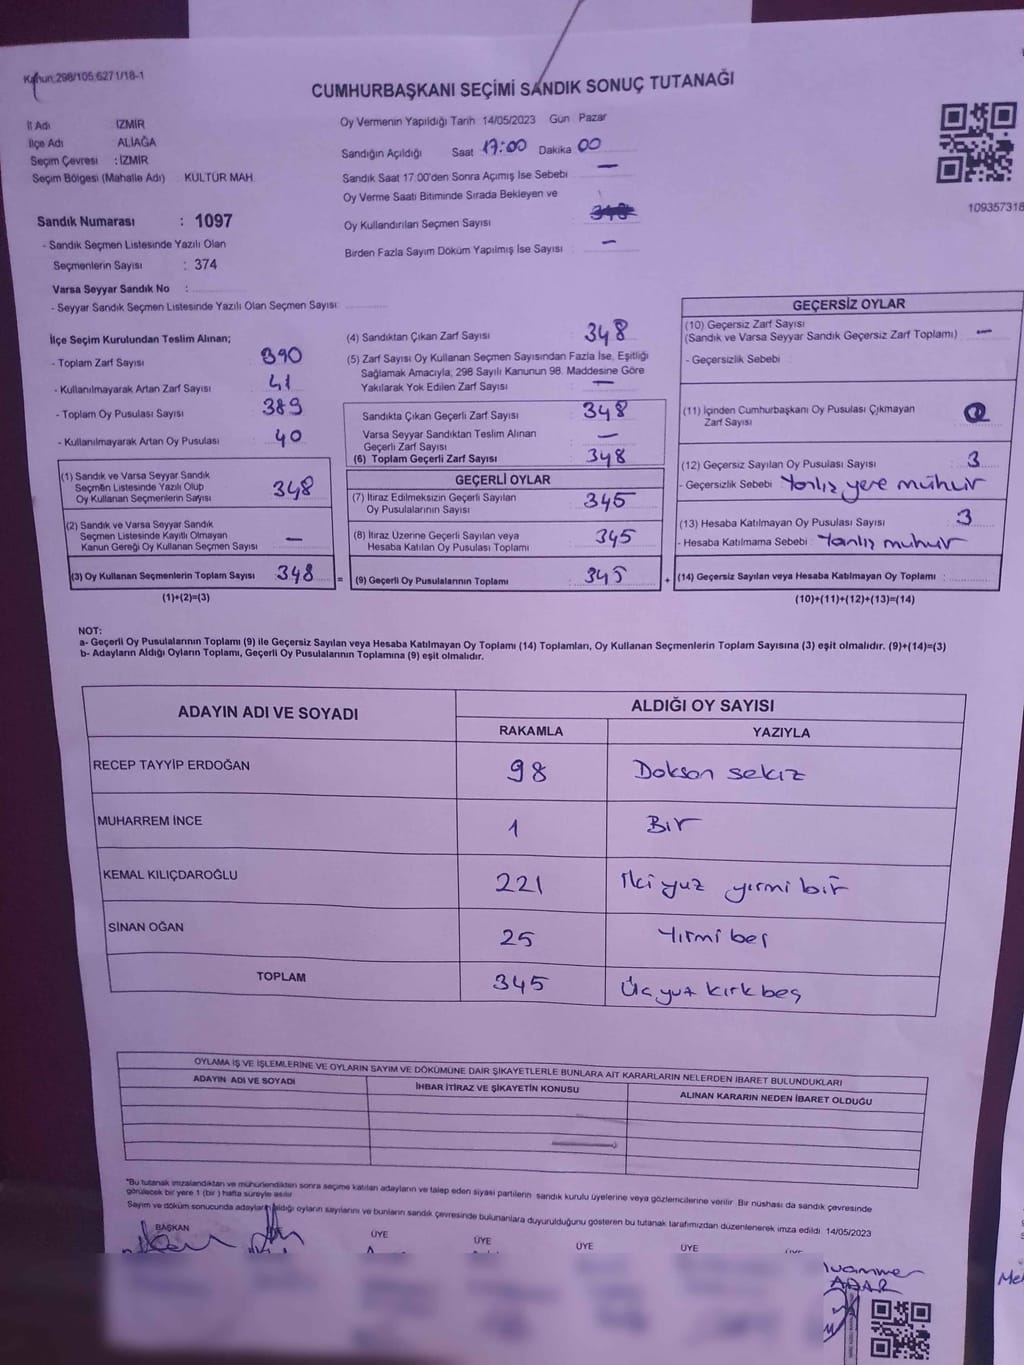 Kanun:298/105;6271/18-1
CUMHURBAŞKANI SEÇİMİ SANDIK SONUÇ TUTANAĞI
İl Adı İZMİR
İlçe Adı ALİAĞA
Seçim Çevresi : İZMİR
Seçim Bölgesi (Mahalle Adı) KÜLTÜR MAH.
Sandık Numarası : 1097
- Sandık Seçmen Listesinde Yazılı Olan
Seçmenlerin Sayısı : 374
Varsa Seyyar Sandık No :
- Seyyar Sandık Seçmen Listesinde Yazılı Olan Seçmen Sayısı
Oy Vermenin Yapıldığı Tarih 14/05/2023 Gün Pazar
Sandığın Açıldığı Saat 17:00 Dakika 00
Sandık Saat 17.00'den Sonra Açımış İse Sebebi —
Oy Verme Saati Bitiminde Sırada Bekleyen ve
Oy Kullandırılan Seçmen Sayısı
Birden Fazla Sayım Döküm Yapılmış İse Sayısı —
109357318
İlçe Seçim Kurulundan Teslim Alınan;
- Toplam Zarf Sayısı 390
- Kullanılmayarak Artan Zarf Sayısı 41
- Toplam Oy Pusulası Sayısı 389
- Kullanılmayarak Artan Oy Pusulası 40
(1) Sandık ve Varsa Seyyar Sandık
Seçmen Listesinde Yazılı Olup
Oy Kullanan Seçmenlerin Sayısı 348
(2) Sandık ve Varsa Seyyar Sandık
Seçmen Listesinde Kayıtlı Olmayan
Kanun Gereği Oy Kullanan Seçmen Sayısı —
(3) Oy Kullanan Seçmenlerin Toplam Sayısı 348 =
(1)+(2)=(3)
(4) Sandıktan Çıkan Zarf Sayısı 348
(5) Zarf Sayısı Oy Kullanan Seçmen Sayısından Fazla İse, Eşitliği
Sağlamak Amacıyla, 298 Sayılı Kanunun 98. Maddesine Göre
Yakılarak Yok Edilen Zarf Sayısı —
Sandıkta Çıkan Geçerli Zarf Sayısı 348
Varsa Seyyar Sandıktan Teslim Alınan
Geçerli Zarf Sayısı —
(6) Toplam Geçerli Zarf Sayısı 348
GEÇERLİ OYLAR
(7) İtiraz Edilmeksizin Geçerli Sayılan
Oy Pusulalarının Sayısı 345
(8) İtiraz Üzerine Geçerli Sayılan veya
Hesaba Katılan Oy Pusulası Toplamı 345
(9) Geçerli Oy Pusulalarının Toplamı 345 +
GEÇERSİZ OYLAR
(10) Geçersiz Zarf Sayısı
(Sandık ve Varsa Seyyar Sandık Geçersiz Zarf Toplamı) —
- Geçersizlik Sebebi
(11) İçinden Cumhurbaşkanı Oy Pusulası Çıkmayan
Zarf Sayısı
(12) Geçersiz Sayılan Oy Pusulası Sayısı 3
- Geçersizlik Sebebi Yanlız yere mühür
(13) Hesaba Katılmayan Oy Pusulası Sayısı 3
- Hesaba Katılmama Sebebi Yanlız muhur
(14) Geçersiz Sayılan veya Hesaba Katılmayan Oy Toplamı :
(10)+(11)+(12)+(13)=(14)
NOT:
a- Geçerli Oy Pusulalarının Toplamı (9) ile Geçersiz Sayılan veya Hesaba Katılmayan Oy Toplamı (14) Toplamları, Oy Kullanan Seçmenlerin Toplam Sayısına (3) eşit olmalıdır. (9)+(14)=(3)
b- Adayların Aldığı Oyların Toplamı, Geçerli Oy Pusulalarının Toplamına (9) eşit olmalıdır.
ADAYIN ADI VE SOYADI ALDIĞI OY SAYISI
RAKAMLA YAZIYLA
RECEP TAYYİP ERDOĞAN 98 Doksan sekiz
MUHARREM İNCE 1 Bir
KEMAL KILIÇDAROĞLU 221 İki yuz yirmi bir
SİNAN OĞAN 25 Yirmi beş
TOPLAM 345 Üç yuz kırk beş
OYLAMA İŞ VE İŞLEMLERİNE VE OYLARIN SAYIM VE DÖKÜMÜNE DAİR ŞİKAYETLERLE BUNLARA AİT KARARLARIN NELERDEN İBARET BULUNDUKLARI
ADAYIN ADI VE SOYADI İHBAR İTİRAZ VE ŞİKAYETİN KONUSU ALINAN KARARIN NEDEN İBARET OLDUĞU
*Bu tutanak imzalandıktan ve mühürlendikten sonra seçime katılan adayların ve talep eden siyasi partilerin sandık kurulu üyelerine veya gözlemcilerine verilir. Bir nüshası da sandık çevresinde
görülecek bir yere 1 (bir) hafta süreyle asılır.
Sayım ve döküm sonucunda adayların aldığı oyların sayılarını ve bunların sandık çevresinde bulunanlara duyurulduğunu gösteren bu tutanak tarafımızdan düzenlenerek imza edildi. 14/05/2023
BAŞKAN ÜYE ÜYE ÜYE ÜYE